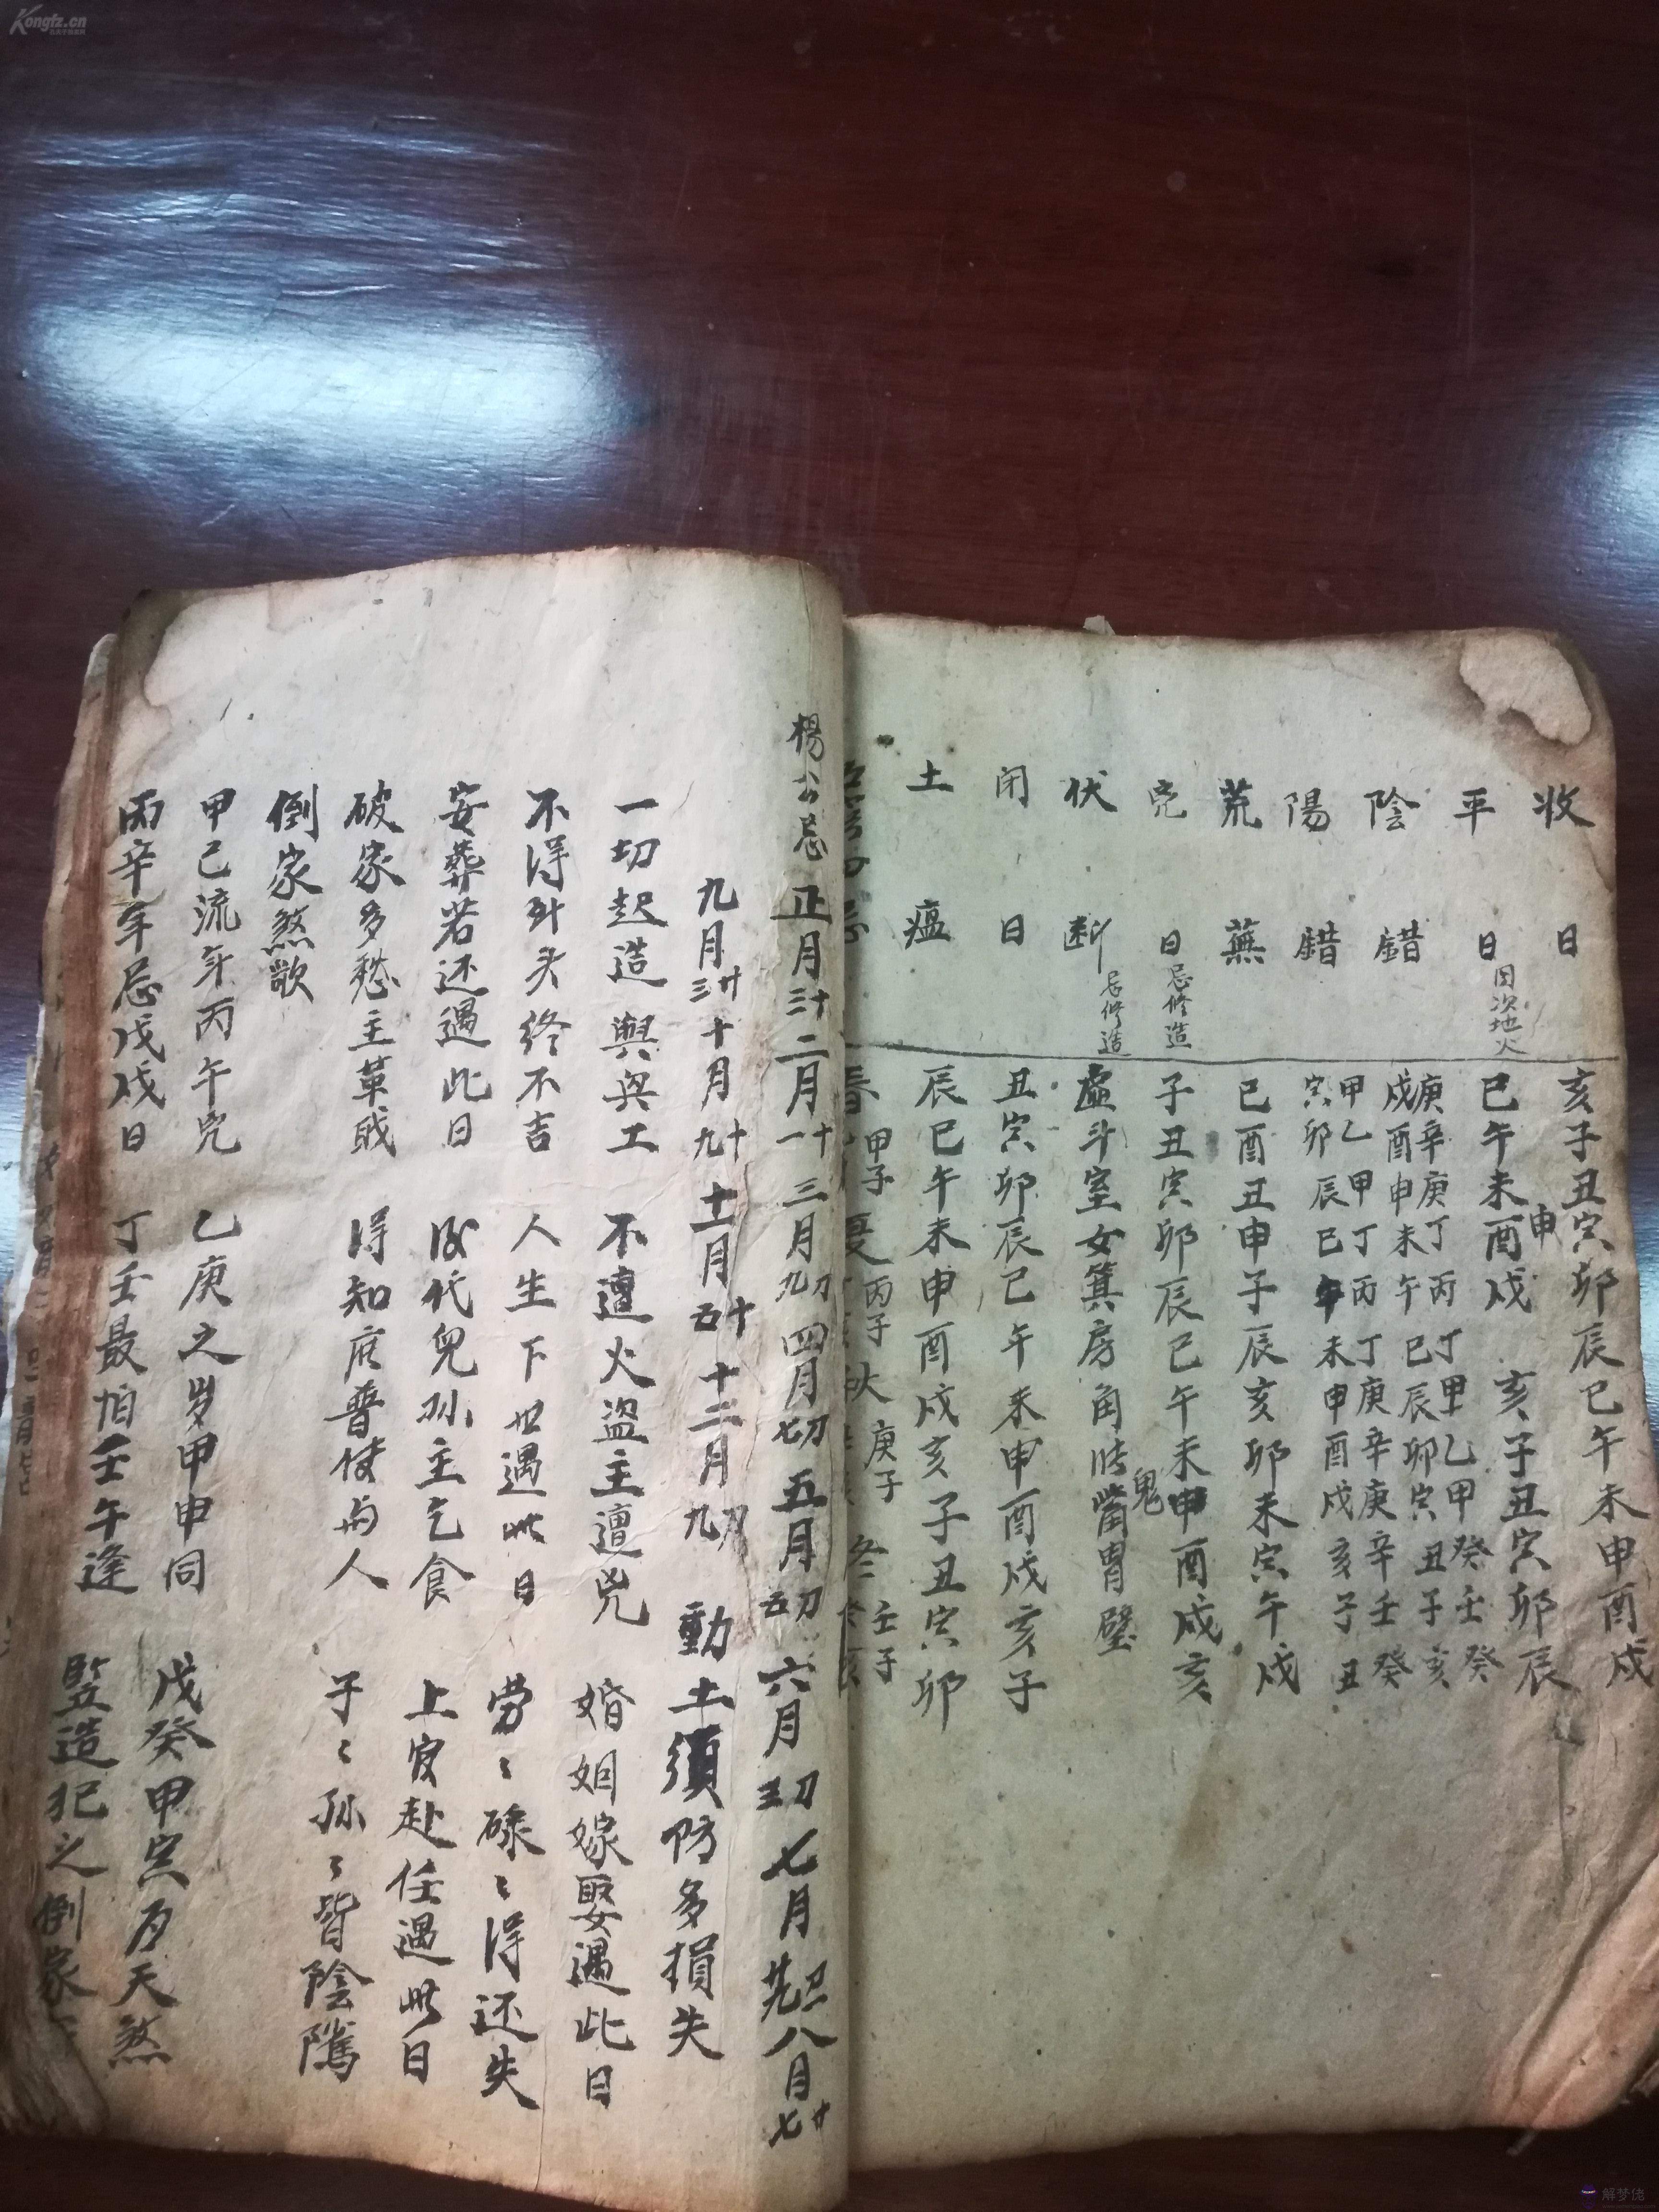 Kongfz.cn
收日 亥子丑寅卯辰巳午未申酉戍
平日 因次地火 巳午未申酉戍亥子丑寅卯辰
陰錯 庚辛庚丁丙丁甲乙甲癸壬癸
戍酉申未午巳辰卯寅丑子亥
陽錯 甲乙甲丁丙丁庚辛庚辛壬癸
寅卯辰巳午未申酉戍亥子丑
荒蕪 巳酉丑申子辰亥卯未寅午戍
兇日 忌修造 子丑寅卯辰巳午未申酉戍亥
伏断 忌修造 虛斗室女箕房角张鬼觜胃壁
闭日 丑寅卯辰巳午未申酉戍亥子
土瘟 辰巳午未申酉戍亥子丑寅卯
忌 春 甲子 夏 丙子 秋 庚子 冬 壬子
楊公忌 正月十三 二月十一 三月初九 四月初七 五月初五 六月初三 七月初一廿九 八月廿七
九月廿三 十月十九 十一月十五 十二月初九 動土須防多損失
一切起造與興工 不遭火盜主遭兇 婚姻嫁娶遇此日
不得到头終不吉 人生下世遇此日 劳〻碌〻得还失
安葬若还遇此日 後代兒孙主乞食 上官赴任遇此日
破家多愁主革戝 得知庶普使与人 子〻孙〻皆陰隲
倒家煞歌
甲己流年丙午兇 乙庚之岁甲申同 戊癸甲寅为天煞
丙辛年忌戊戍日 丁壬最怕壬午逢 竪造犯之倒家
解梦佬